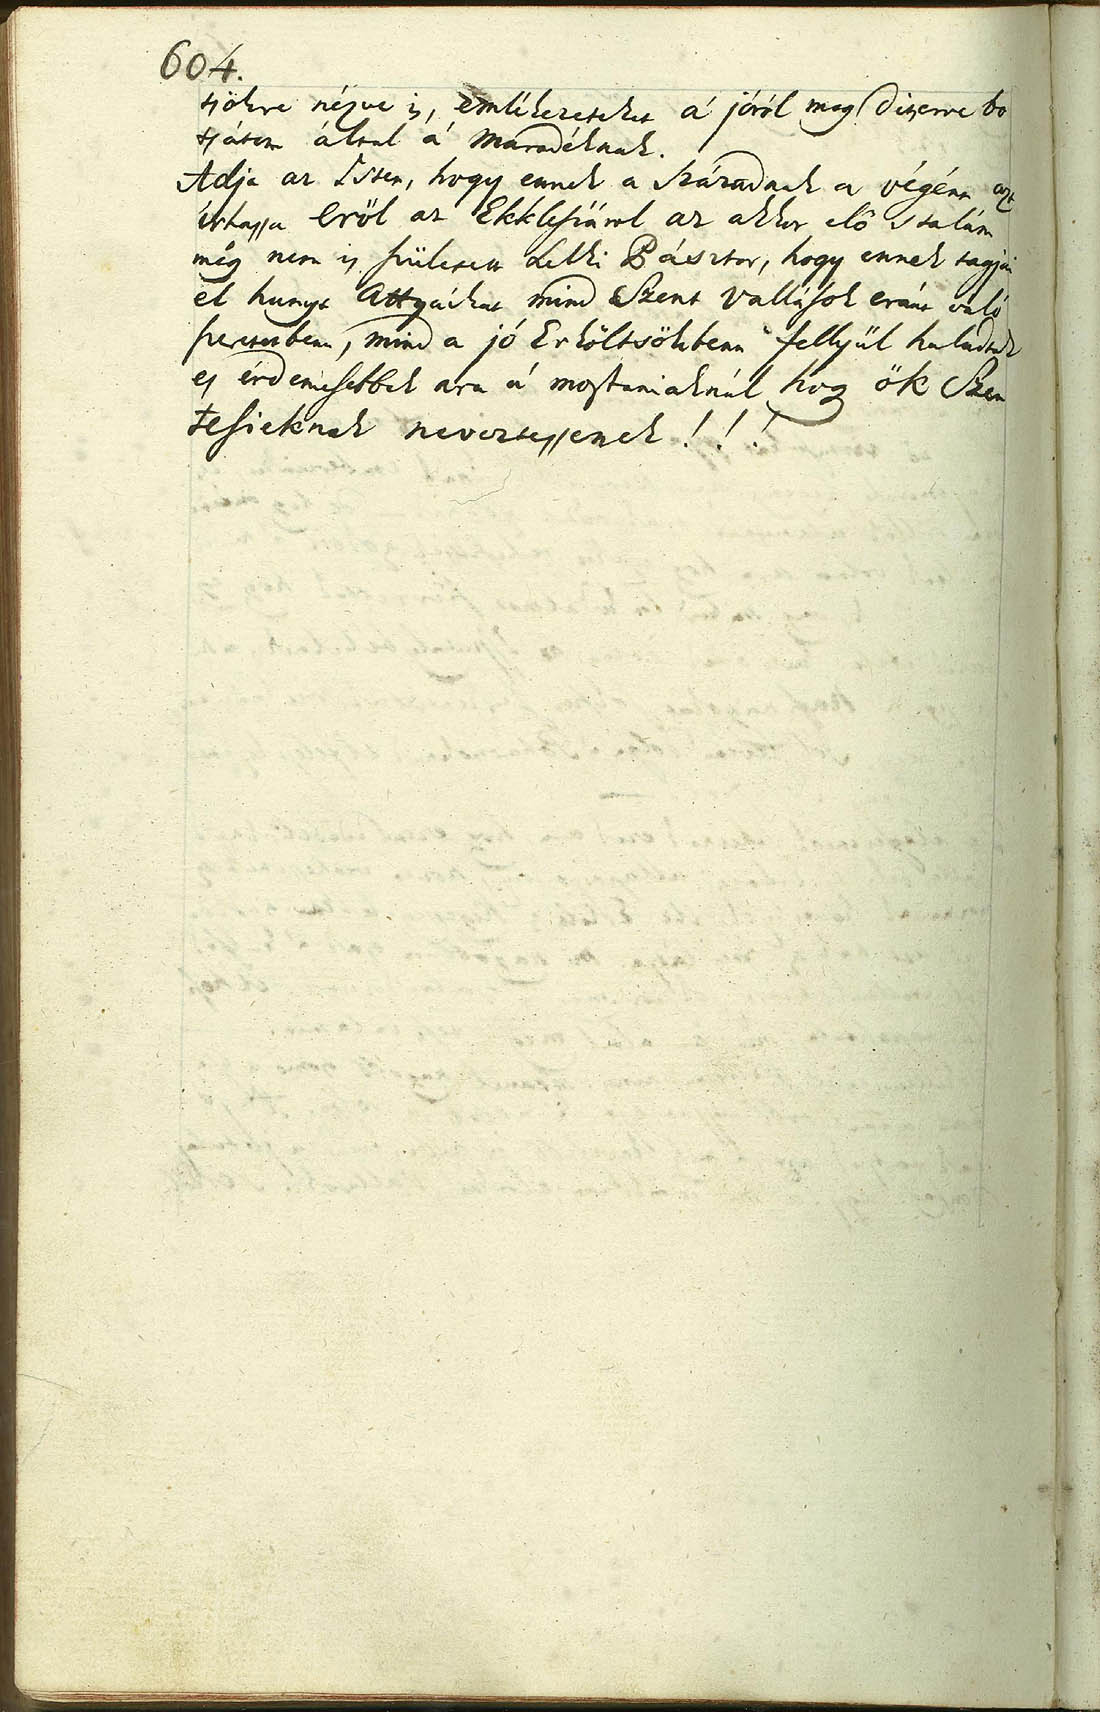 604.
tsökre nézve is, emlékezeteket á jóról meg ditserve bo
tsátom által á maradéknak.
Adja az Isten, hogy ennek a Századnak a végénn azt
írhassa erröl az Ekklésiárol az akkor elö s talám
még nem is született Lelki Pásztor, hogy ennek tagjai
el hunyt Attyáikat mind Szent Vallások eránt való
szeretetbenn, mind a jó Erköltsökbenn fellyül haladtak
és érdemesebbek arra á mostaniaknál hogy ök Szen
tesieknek neveztessenek ! ! !